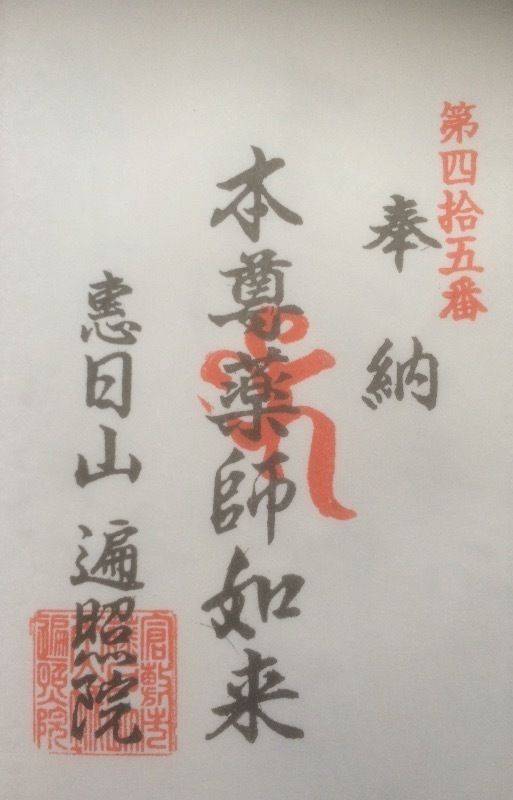 第四拾五番
奉納
本尊薬師如来
恵日山 遍照院